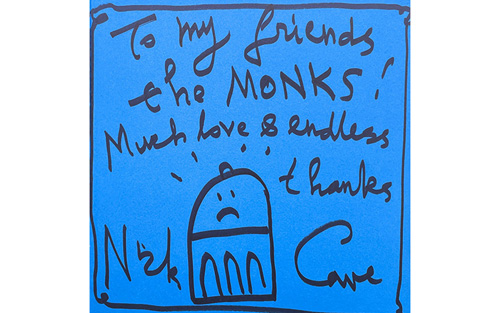 To my friends
the MONKS!
Much love & endless
thanks
Nick Cave